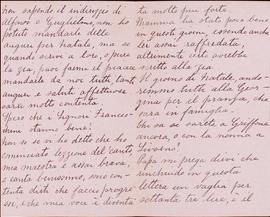 non sapendo il indirizzo di
Alfonso e Guglielmo, non ho
potuto mandarle delle
auguri per Natale, ma se
quando scrive a loro, o pure
la già, puo farmi il piacere
mandarle da noi tutti tanti
auguri e saluti affettuosi
sarò molto contenta.
Spero che i Signori
stanno bene!
non so se vi ho detto che ho
cominciato lezzione del canto,
mia maestra è assai brava,
e canta benissimo, sono con-
tenta dirti che faccio progre-
ssi, e che mia voce è diventa
ta molto piu forte.
Mamma ha stata poco bene
in questi giorni, essendo anche
lei assai raffredata,
altrimenti ella avrebbe
scritta essa.
Il giorno di Natale, and-
remmo tutti alla Geor-
gina per il pranzo, che
sara in famiglia.
Chi va se sarete a Griffone
ancora, o con la nonna a
Livorno!
Papa mi prega dirvi che
inchiudo in questa
lettera un vaglia per
settanta tre lire, e il